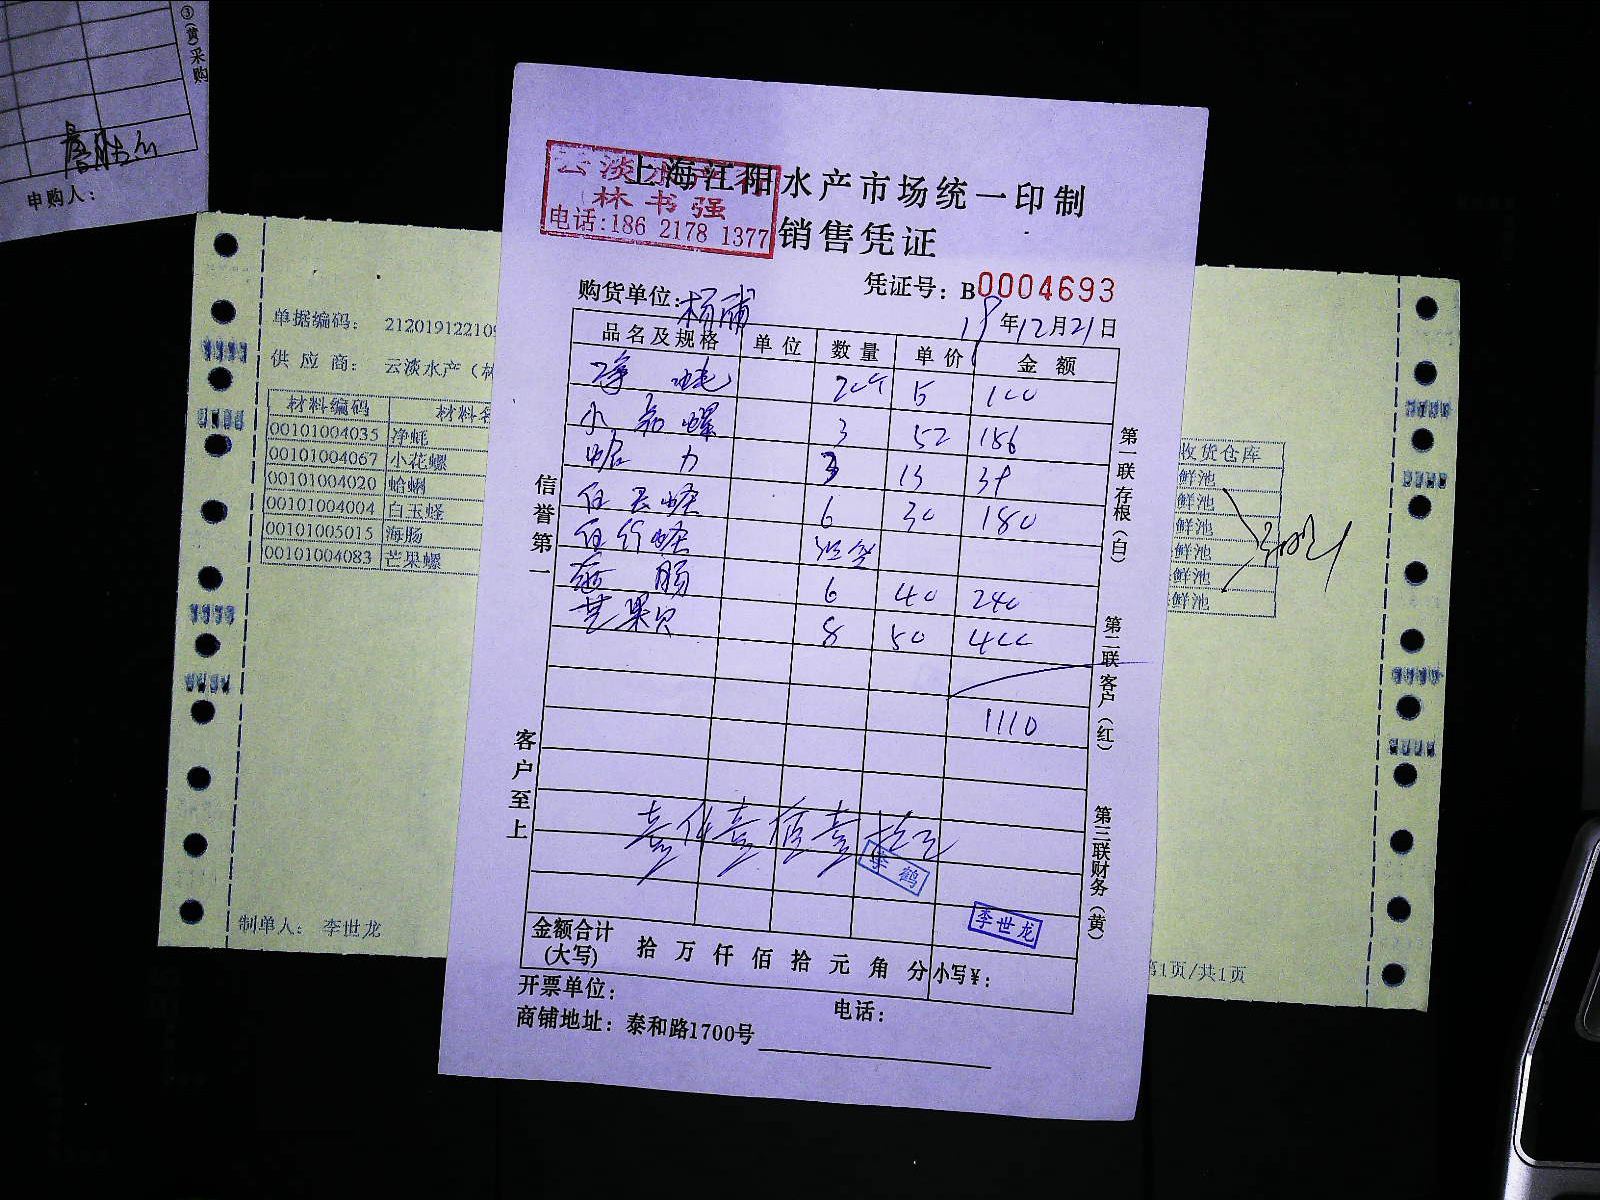 ③(黄)采购
申购人:
云淡水产
林书强
电话:186 2178 1377
上海江阳水产市场统一印制
销售凭证
凭证号: B0004693
购货单位: 杨浦
19年12月21日
品名及规格 单位 数量 单价 金额
净 蚝 20个 5 100
小 花 螺 3 52 156
蛤 力 3 13 39
白玉蛏 6 30 180
竹蛏
海 肠 6 40 240
芒果贝 8 50 400
1110
壹仟壹佰壹拾元
李鹤
李世龙
金额合计
(大写) 拾 万 仟 佰 拾 元 角 分 小写¥:
开票单位:
电话:
商铺地址: 泰和路1700号
信誉第一
客户至上
第一联存根(白)
第二联客户(红)
第三联财务(黄)
单据编码: 212019122109
供 应 商: 云淡水产(林
材料编码 材料名
00101004035 净蚝
00101004067 小花螺
00101004020 蛤蜊
00101004004 白玉蛏
00101005015 海肠
00101004083 芒果螺
制单人: 李世龙
收货仓库
鲜池
鲜池
鲜池
鲜池
鲜池
鲜池
第1页/共1页